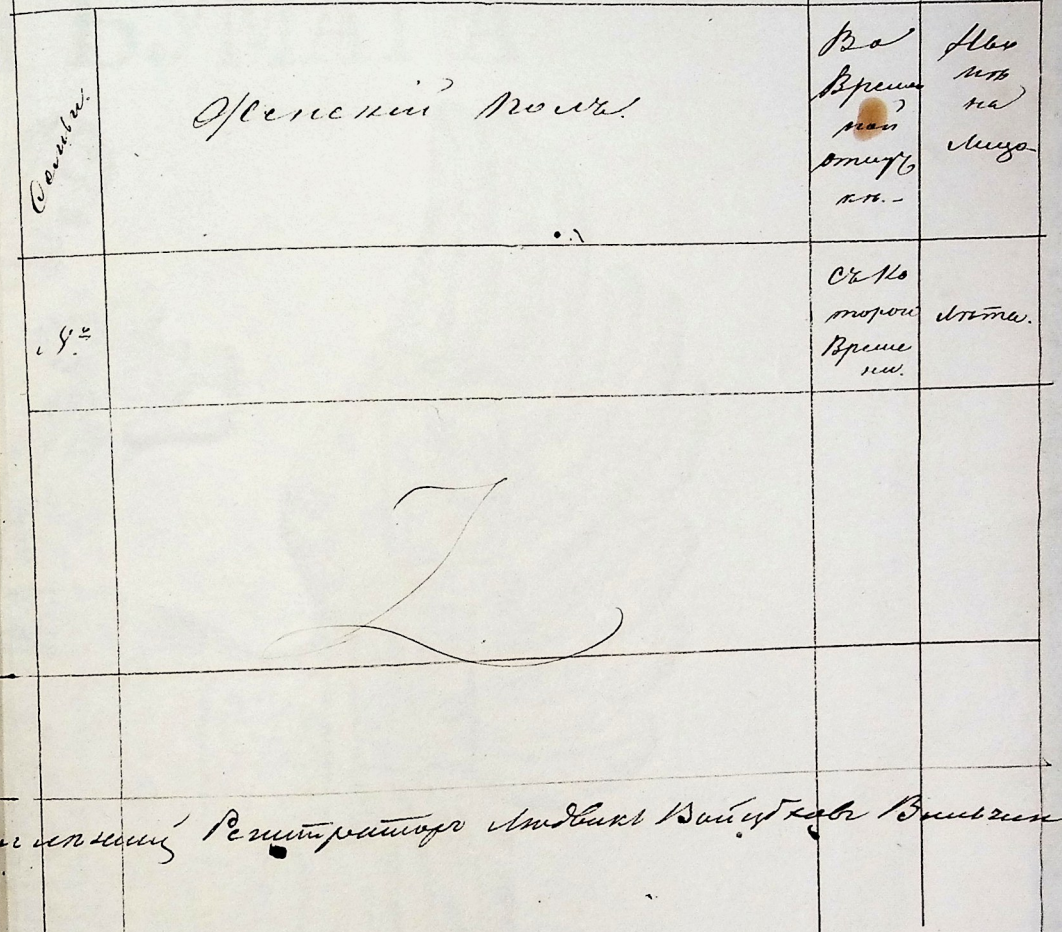 Семьи.
Женскій полъ.
Во
Времен
ной
отлуч
кѣ.-
Ны
нѣ
на
лицо
№
съ Ко
торого
Време
ни.
лѣта.
Регистраторъ Людвикъ Войцѣховъ